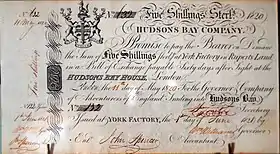 No 132
Five Shillings Sterg
1820
HUDSONS BAY COMPANY.
I Promise to pay the Bearer on Demand
the Sum of Five Shillings Sterg at York Factory in Ruperts Land
in a Bill of Exchange payable Sixty days after Sight at the
HUDSONS BAY HOUSE, London.
London, the day of May 1820 For the Governor & Company
of Adventurers of England Trading into Hudsons Bay.
No 132
ISSUED AT YORK FACTORY, the day 1821 by
Governor
Entd John Spencer Accountant
Five Shillings